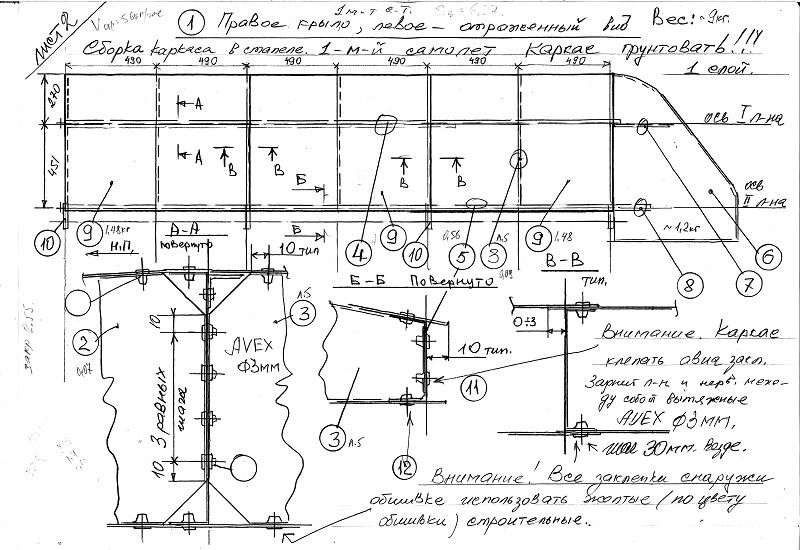 лист 2
1 м-т с.т.
① Правое крыло, левое – отраженный вид Вес: ~9кг.
Сборка каркаса в стапеле. 1-м-й самолет Каркас грунтовать!!!
1 слой.
490 490 490 490
270
451
А
А
В В В В
Б
Б
ось I л-на
ось II л-на
10 9 1,48кг 4 9 10 0,56 5 3 Л.5 9 1,48 ~1,2кг 8 7 6
А-А
повернуто
Н.П.
10 тип
Б-Б Повернуто
В-В
тип.
0÷3
2
10
3 равных
шага
10
Л.5
3
AVEX
Ф3мм
10 тип.
11
3 Л.5
12
Внимание. Каркас
клепать авиа закл.
л-н и нерв. меж-
ду собой вытяжные
AVEX Ф3мм.
шаг 30мм. везде.
Внимание! Все заклепки снаружи
обшивке использовать желтые (по цвету
обшивки) строительные.